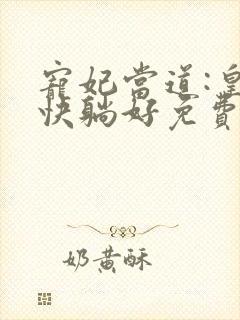 寵妃當道:皇
快躺好免費
奶黃酥